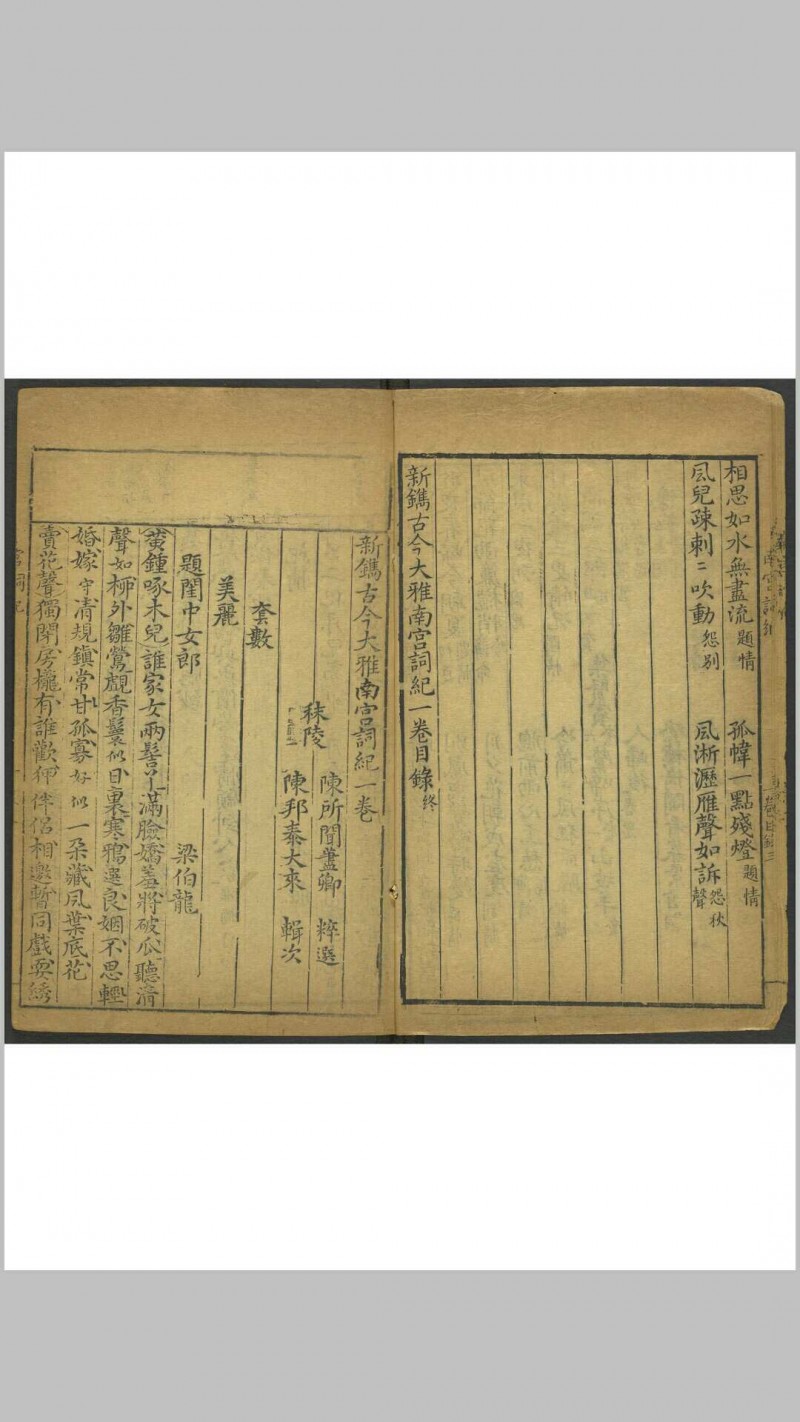 相思如水無盡流 題情 孤幃一點殘燈 題情
風兒疎剌〻吹動 怨別 風淅瀝雁聲如訴 怨秋聲
新鐫古今大雅南宮詞紀一卷目錄終
新鐫古今大雅南宮詞紀一卷
秣陵 陳所聞藎卿 粹選
陳邦泰大來 輯次
套數
美麗
題閨中女郎 梁伯龍
黃鍾啄木兒誰家女兩髻丫滿臉嬌羞將破瓜聽清
聲如柳外雛鶯覷香鬟似日裏寒鴉選良姻不思輕
婚嫁守清規鎮常甘孤寡好似一朶藏風葉底花
賣花聲獨閉房櫳有誰歡狎伴侶相邀暫同戲耍綉